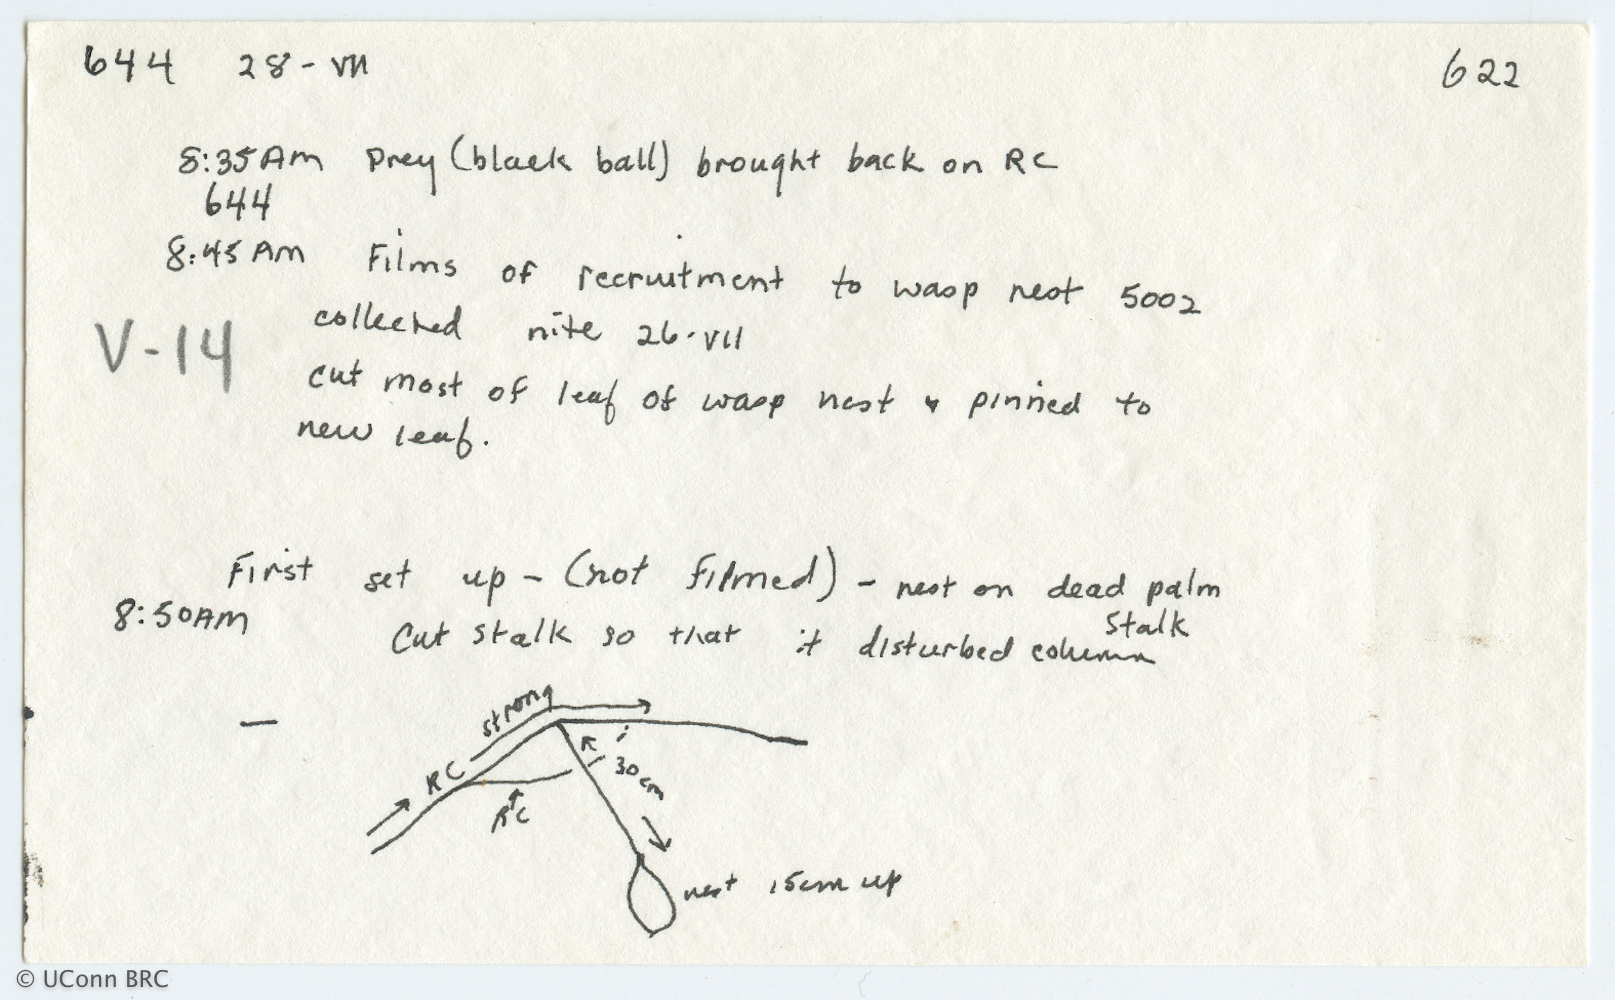 644 28-VII 622
8:35Am Prey (black ball) brought back on RC
644
8:45 Am Films of recruitment to wasp nest 5002
collected nite 26-VII
V-14
cut most of leaf of wasp nest & pinned to
new leaf.
First set up - (not filmed) - nest on dead palm
stalk
8:50AM
Cut stalk so that it disturbed column
strong
RC
30cm
RC
nest 15cm up
© UConn BRC